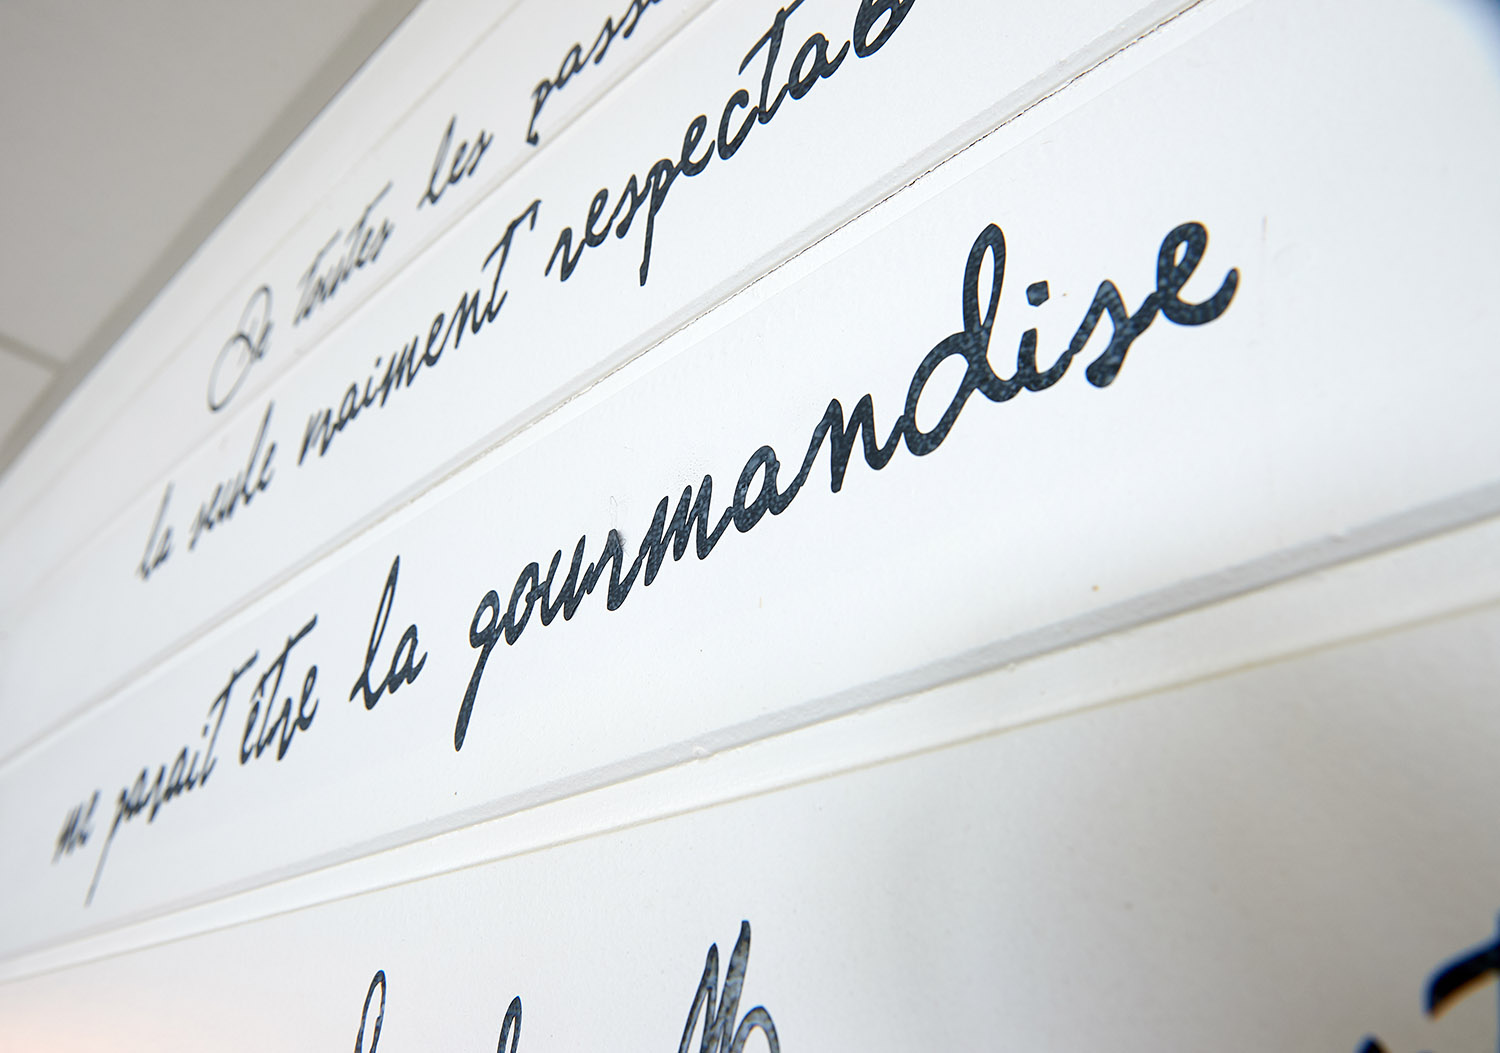 De toutes les pass
la seule vraiment respectab
me parait être la gourmandise